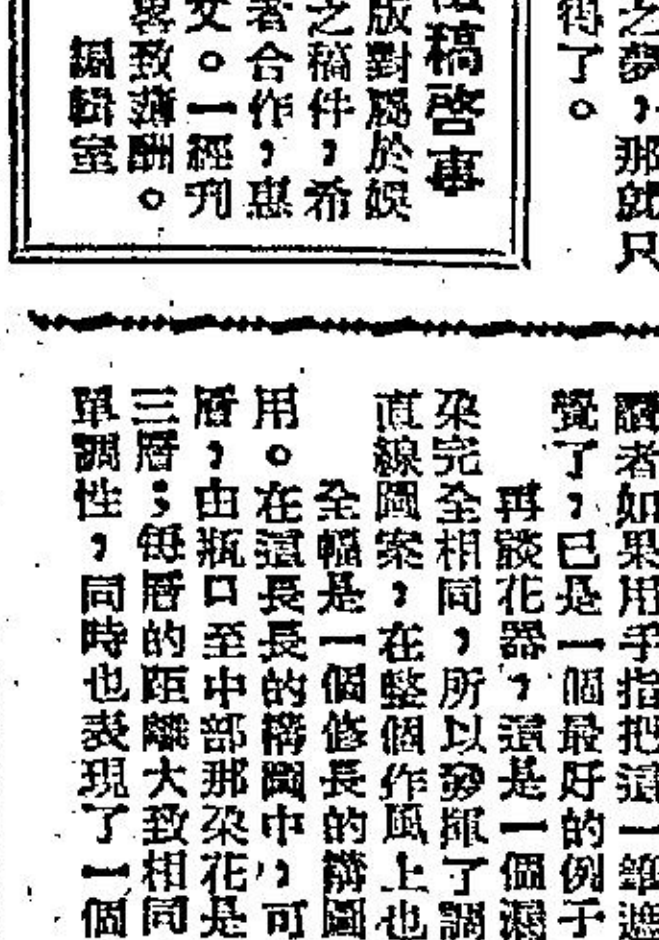 之夢，那就只
得了。
稿啓事
版對屬於娛
之稿件，希
者合作，惠
文。一經刋
致薄酬。
編輯室
讀者如果用手指把這一維遮
覺了，已是一個最好的例子
再談花器，這是一個
朶完全相同，所以發揮了調
直線圖案，在整個作風上也
全幅是一個修長的構圖
用。在這長長的構圖中，可
層，由瓶口至中部那朶花是
三層；每層的距離大致相同
單調性，同時也表現了一個